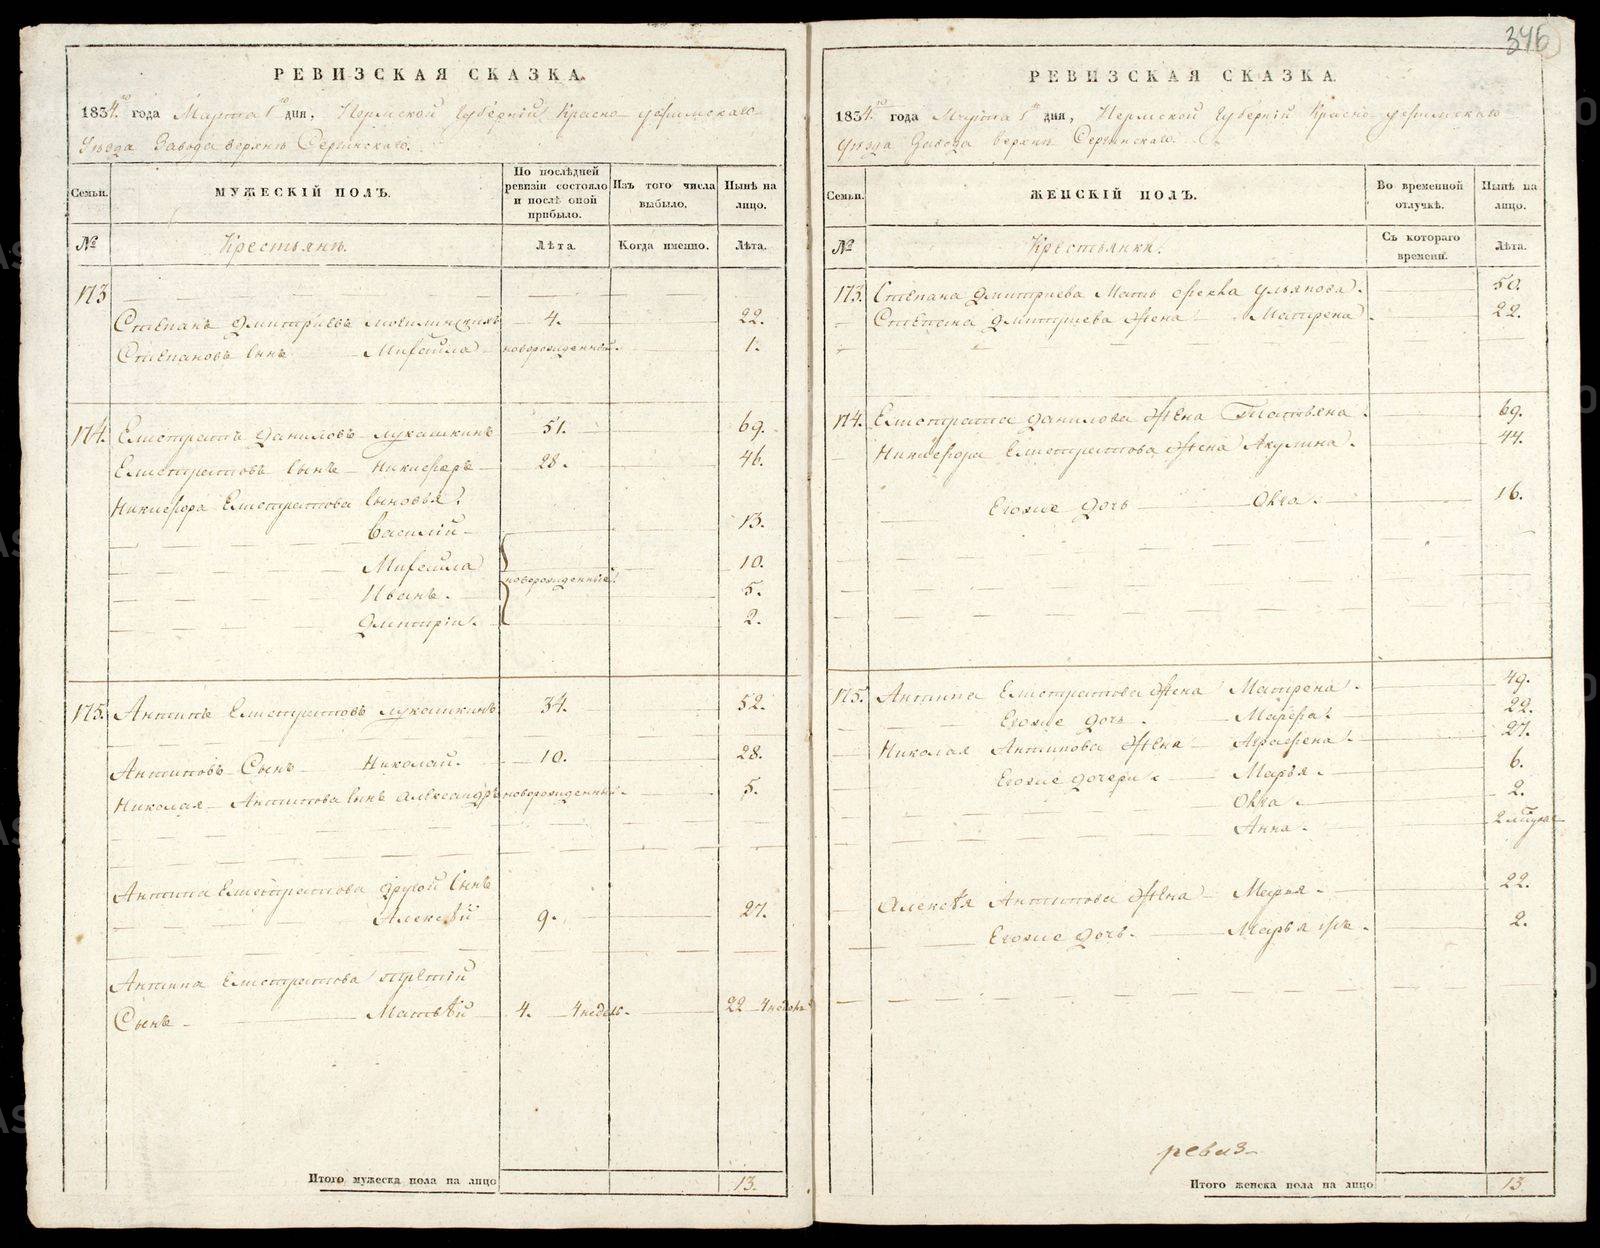 346
РЕВИЗСКАЯ СКАЗКА.
1834го года Марта 1го дня, Пермской Губерніи Красно-уфимскаго
Уѣзда Завода верхнѣ Сергинскаго.
Семьи.
МУЖЕСКІЙ ПОЛЪ.
По послѣдней ревизіи состояло и послѣ оной прибыло.
Изъ того числа выбыло.
Нынѣ на лицо.
№
Крестьянѣ.
Лѣта.
Когда именно.
Лѣта.
173
Степанъ Дмитріевъ 4. 22.
Степановъ Сынъ Михайла новорожденный. 1.
174. Елистратъ Даниловъ Лукашкинъ 51. 69.
Елистратовъ Сынъ Никифоръ 28. 46.
Никифора Елистратова Сыновья:
Василій 13.
Михайла 10.
новорожденные
Иванъ. 5.
Дмитрій. 2.
175. Антипъ Елистратовъ Лукашкинъ 34. 52.
Антиповъ Сынъ Николай. 10. 28.
Николая Антипова Сынъ Александръ новорожденный. 5.
Антипа Елистратова другой Сынъ
Алексѣй 9. 27.
Антипа Елистратова третій
Сынъ Матвѣй 4. 4 недѣль. 22 4 недѣль
Итого мужеска пола на лицо 13.
РЕВИЗСКАЯ СКАЗКА.
1834го года Марта 1го дня, Пермской Губерніи Красно уфимскаго
Уѣзда Завода верхнѣ Сергинскаго.
Семьи.
ЖЕНСКІЙ ПОЛЪ.
Во временной отлучкѣ.
Нынѣ на лицо.
№
Крестьянки.
Съ котораго времени.
Лѣта.
173. Степана Дмитріева Мать Фекла Ульянова. 50.
Степана Дмитріева Жена Матрена. 22.
174. Елистрата Данилова Жена Татьяна. 69.
Никифора Елистратова Жена Акулина. 44.
Егоже дочь Окка. 16.
175. Антипа Елистратова Жена Матрена. 49.
Егоже дочь. Марфа. 22.
Николая Антипова Жена Аграфена. 27.
Егоже дочери: Марья. 6.
Окка. 2.
Анна.
Алексѣя Антипова Жена Марья. 22.
Егоже дочь. Марья 2.
ревиз
Итого женска пола на лицо 13